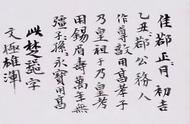 佳鄀正二月初吉
乙丑鄀公敄人
作尊敦用享孝于
乃皇祖于乃皇考
用錫眉壽萬年無
疆子孫永寶用享
此楚器字
文極雄渾